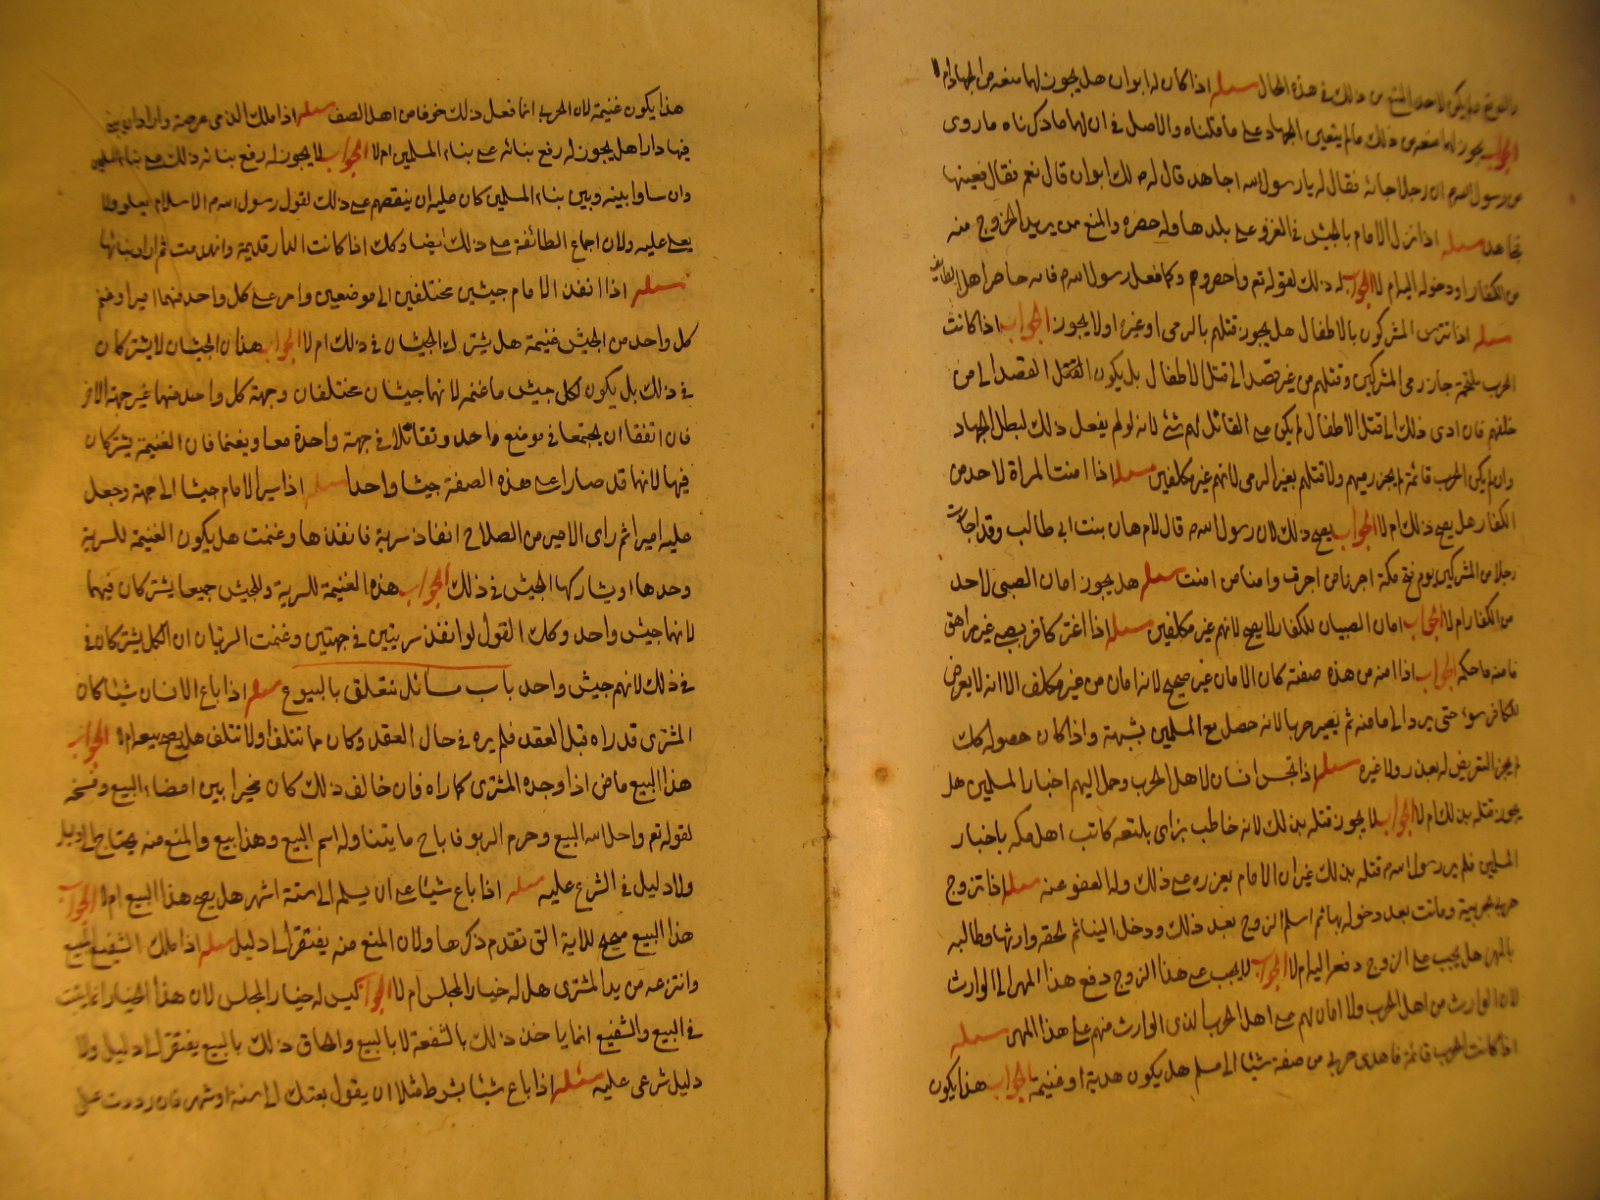 والنوع فلم يكن لاحد المنع من ذلك في هذه الحال مسئله اذا كان له ابوان هل يجوز لهما منعه من الجهاد ام لا
الجواب يجوز لهما منعه من ذلك ما لم يتعين الجهاد على ما قلناه والاصل في ان لهما ما ذكرناه ما روى
عن رسول الله ص ان رجلا جائه فقال له يا رسول الله اجاهد قال له ص لك ابوان قال نعم فقال ففيهما
فجاهد مسئله اذا نزل الامام بالجيش في الغزو على بلد هل وله حصره والمنع ممن يريد الخروج منه
من الكفار او دخوله اليه ام لا الجواب له ذلك لقوله تع واحصروهم وكما فعل رسول الله ص فانه حاصر اهل الطايف
مسئله اذا تترس المشركون بالاطفال هل يجوز قتلهم بالرمى او غيره او لا يجوز الجواب اذا كانت
الحرب ملتحمة جاز رمى المشركين وقتلهم من غير قصد الى قتل الاطفال بل يكون القتل القصد الى من
خلفهم فان ادى ذلك الى قتل الاطفال لم يكن على القاتل لهم شئ لانه لو لم يفعل ذلك لبطل الجهاد
وان لم يكن الحرب قائمة لم يجز رميهم ولا قتلهم بغير الرمى لانهم غير مكلفين مسئله اذا امنت المراة لاحد من
الكفار هل يصح ذلك ام لا الجواب يصح ذلك لان رسول الله ص قال لام هان بنت ابى طالب وقد اجارت
رجلا من المشركين يوم فتح مكة اجرنا من اجرت وامنا من امنت مسئله هل يجوز امان الصبى لاحد
من الكفار ام لا الجواب امان الصبيان للكفار لا يصح لانهم غير مكلفين مسئله اذا اغتر كافر بصبى غير مراهق
فامنه ما حكمه الجواب اذا امنه من هذه صفته كان الامان غير صحيح لانه امان من غير مكلف الا انه لا يعرض
للكافر سوء حتى يرد الى مامنه ثم يصير حربا لانه حصل مع المسلمين بشبهة واذا كان حصوله كك
لم يجز التعرض له بغدر ولا غيره مسئله اذا تجسس انسان لاهل الحرب وحمل اليهم اخبار المسلمين هل
يجوز قتله بذلك ام لا الجواب لا يجوز قتله بذلك لانه خاطب بن ابى بلتعه كاتب اهل مكه باخبار
المسلمين فلم ير رسول الله ص قتله بذلك غير ان الامام يعزره على ذلك وله العفو عنه مسئله اذا تزوج
حربى بحربية وماتت بعد دخوله بها ثم اسلم الزوج بعد ذلك ودخل الينا ثم لحقه وارثها وطالبه
بالمهر هل يجب على الزوج دفعه اليه ام لا الجواب لا يجب على هذا الزوج دفع هذا المهر الى الوارث
لان الوارث من اهل الحرب ولا امان لهم على اهل الحرب الذى الوارث منهم على هذا المهر مسئله
اذا كانت الحرب قائمة فاهدى حربى من صفه شيئا الى مسلم هل يكون هدية او غنيمة الجواب هذا يكون
هذا يكون غنيمة لان الحربى انما فعل ذلك خوفا من اهل الصف مسئله اذا ملك الذمى عرصة واراد ان يبنى
فيها دارا هل يجوز له رفع بنائه على بناء المسلمين ام لا الجواب لا يجوز له رفع بنائه ذلك على بناء المسلمين
وان ساوا بينه وبين بناء المسلمين كان عليه ان ينقصهم على ذلك لقول رسول الله ص الاسلام يعلو ولا
يعلى عليه ولان اجماع الطائفة على ذلك ايضا وكك اذا كانت الدار قديمة وانهدمت ثم اراد بنائها
مسئله اذا انفذ الامام جيشين مختلفين الى موضعين وامر على كل واحد منهما اميرا وغنم
كل واحد من الجيش غنيمة هل يشترك الجيشان في ذلك ام لا الجواب هذان الجيشان لا يشتركان
في ذلك بل يكون لكل جيش ما غنمه لانهما جيشان مختلفان وجهة كل واحد منهما غير جهة الاخر
فان اتفقا ان يجتمعا في موضع واحد وتقاتلا في جهة واحدة معا ويغنما فان الغنيمة يشتركان
فيها لانهما قد صارا على هذه الصفة جيشا واحدا مسئله اذا سير الامام جيشا الى جهة وجعل
عليه اميرا ثم راى الامير من الصلاح انفاذ سرية فانفذها وغنمت هل يكون الغنيمة للسرية
وحدها او يشاركها الجيش في ذلك الجواب هذه الغنيمة للسرية والجيش جميعا يشتركان فيها
لانهما جيش واحد وكك القول لو انفذ سريتين في جهتين وغنمت السريتان ان الكل يشتركان في
في ذلك لانهم جيش واحد باب مسائل تتعلق بالبيوع مسئله اذا باع الانسان شيئا كان
المشترى قد راه قبل العقد فلم يره في حال العقد وكان مما تتلف او لا تتلف هل يصح بيعه ام لا الجواب
هذا البيع ماض اذا وجده المشترى كما راه فان خالف ذلك كان مخيرا بين امضاء البيع وفسخه
لقوله تع واحل الله البيع وحرم الربو فاباح ما يتناوله اسم البيع وهذا بيع والمنع منه يحتاج الى دليل
ولا دليل في الشرع عليه مسئله اذا باع شيئا على ان يسلم الى ستة اشهر هل يصح هذا البيع ام لا الجواب
هذا البيع صحيح للاية التى تقدم ذكرها ولان المنع منه يفتقر الى دليل مسئله اذا ملك الشفيع المبيع
وانتزعه من يد المشترى هل له خيار المجلس ام لا الجواب ليس له خيار المجلس لان هذا الخيار انما يثبت
في البيع والشفيع انما ياخذ ذلك بالشفعة لا بالبيع والحاق ذلك بالبيع يفتقر الى دليل ولا
دليل شرعى عليه مسئله اذا باع شيئا بشرط مثلا ان يقول بعتك الى سنة او شهر فان رددت على